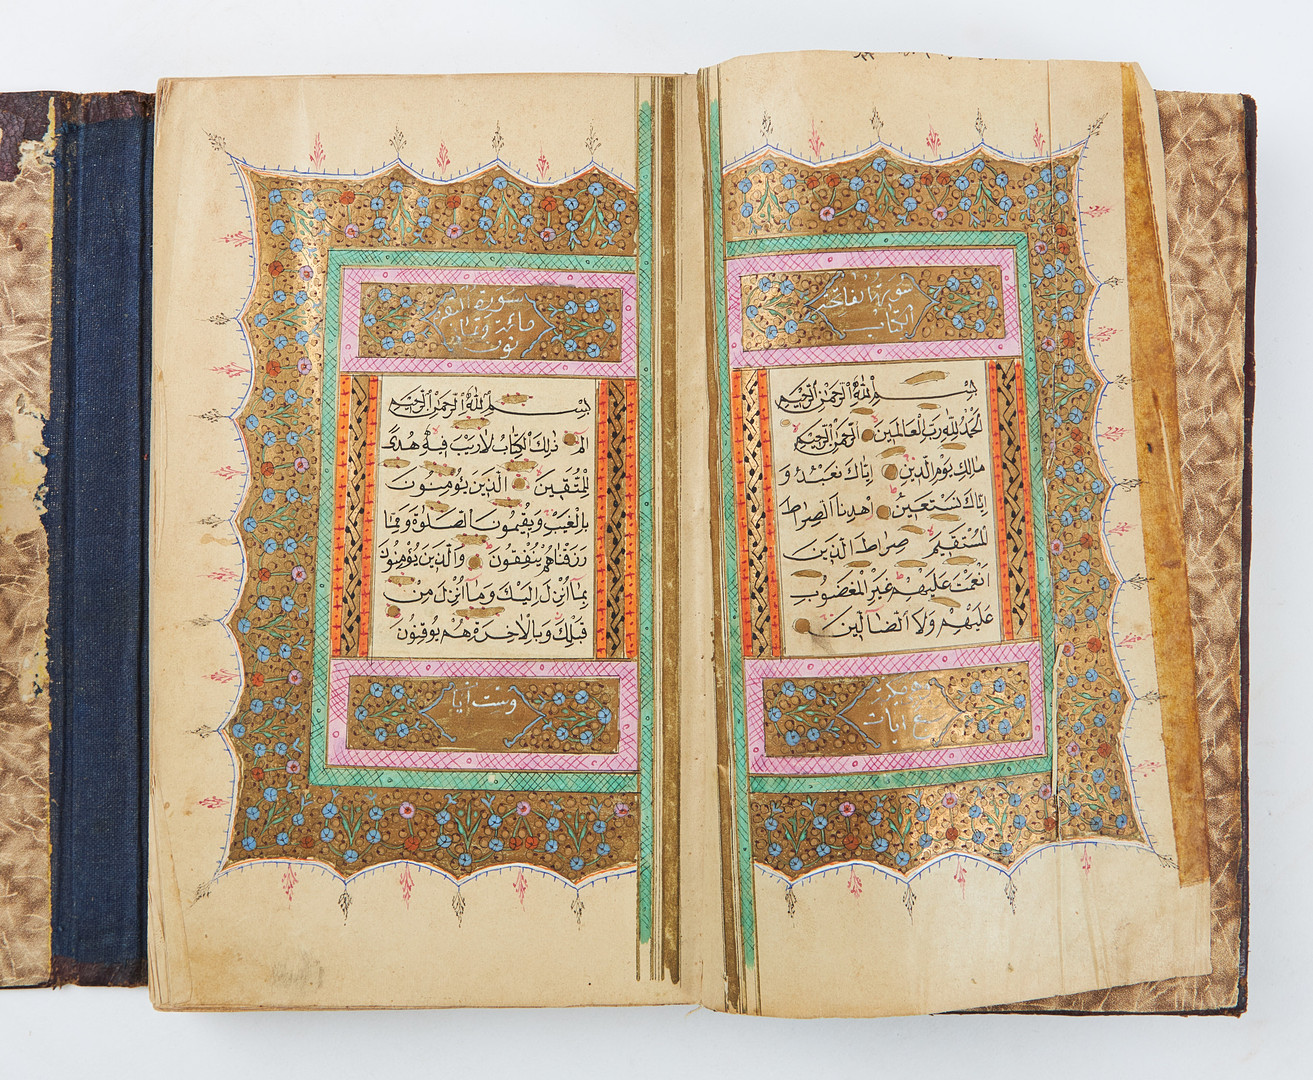 سورة الفاتحة
الكتاب
بِسْمِ اللّٰهِ الرَّحْمٰنِ الرَّحِيمِ
اَلْحَمْدُ لِلّٰهِ رَبِّ الْعَالَمِينَ الرَّحْمٰنِ الرَّحِيمِ
مَالِكِ يَوْمِ الدِّينِ اِيَّاكَ نَعْبُدُ وَ
اِيَّاكَ نَسْتَعِينُ اِهْدِنَا الصِّرَاطَ
الْمُسْتَقِيمَ صِرَاطَ الَّذِينَ
اَنْعَمْتَ عَلَيْهِمْ غَيْرِ الْمَغْضُوبِ
عَلَيْهِمْ وَلَا الضَّالِّينَ
آيات
سورة البقرة
مائة وثمانون
وست آيات
بِسْمِ اللّٰهِ الرَّحْمٰنِ الرَّحِيمِ
الٓمٓ ذٰلِكَ الْكِتَابُ لَا رَيْبَ فِيهِ هُدًى
لِلْمُتَّقِينَ الَّذِينَ يُؤْمِنُونَ
بِالْغَيْبِ وَيُقِيمُونَ الصَّلٰوةَ وَمِمَّا
رَزَقْنَاهُمْ يُنْفِقُونَ وَالَّذِينَ يُؤْمِنُونَ
بِمَٓا اُنْزِلَ اِلَيْكَ وَمَٓا اُنْزِلَ مِنْ
قَبْلِكَ وَبِالْاٰخِرَةِ هُمْ يُوقِنُونَ